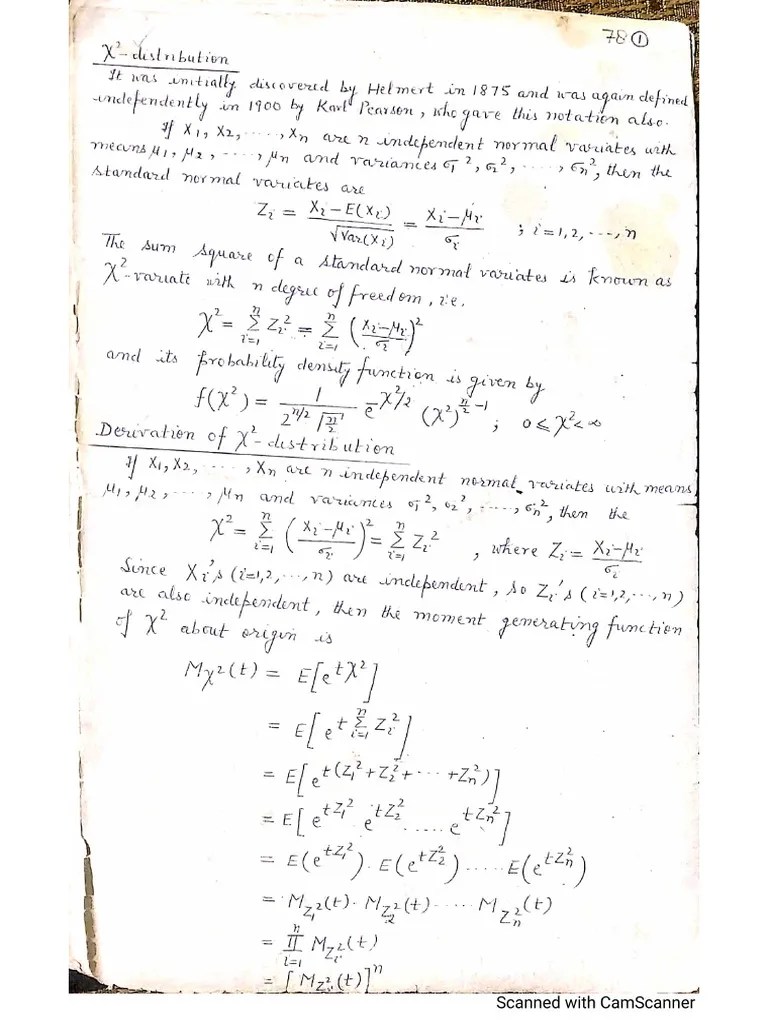 78 ①
χ²-distribution
It was initially discovered by Helmert in 1875 and was again defined
independently in 1900 by Karl Pearson, who gave this notation also.
If X₁, X₂, ....., Xₙ are n independent normal variates with
means μ₁, μ₂, ....., μₙ and variances σ₁², σ₂², ....., σₙ², then the
standard normal variates are
Zᵢ = (Xᵢ-E(Xᵢ))/√Var(Xᵢ) = (Xᵢ-μᵢ)/σᵢ ; i=1,2,...,n
The sum square of a standard normal variates is known as
χ²-variate with n degree of freedom, i.e.
χ² = Σᵢ₌₁ⁿ Zᵢ² = Σᵢ₌₁ⁿ ((Xᵢ-μᵢ)/σᵢ)²
and its probability density function is given by
f(χ²) = 1/(2^(n/2) Γ(n/2)) e^(-χ²/2) (χ²)^(n/2 -1) ; 0≤χ²<∞
Derivation of χ²-distribution
If X₁, X₂, ....., Xₙ are n independent normal variates with means
μ₁, μ₂, ....., μₙ and variances σ₁², σ₂², ....., σₙ², then the
χ² = Σᵢ₌₁ⁿ ((Xᵢ-μᵢ)/σᵢ)² = Σᵢ₌₁ⁿ Zᵢ² , where Zᵢ = (Xᵢ-μᵢ)/σᵢ
Since Xᵢ's (i=1,2,...,n) are independent, so Zᵢ's (i=1,2,...,n)
are also independent, then the moment generating function
of χ² about origin is
M_χ²(t) = E[e^(tχ²)]
= E[e^(t Σᵢ₌₁ⁿ Zᵢ²)]
= E[e^(t(Z₁²+Z₂²+...+Zₙ²))]
= E[e^(tZ₁²) e^(tZ₂²) ..... e^(tZₙ²)]
= E(e^(tZ₁²)). E(e^(tZ₂²))..... E(e^(tZₙ²))
= M_Z₁²(t). M_Z₂²(t)..... M_Zₙ²(t)
= Πᵢ₌₁ⁿ M_Zᵢ²(t)
= [M_Zᵢ²(t)]ⁿ
Scanned with CamScanner